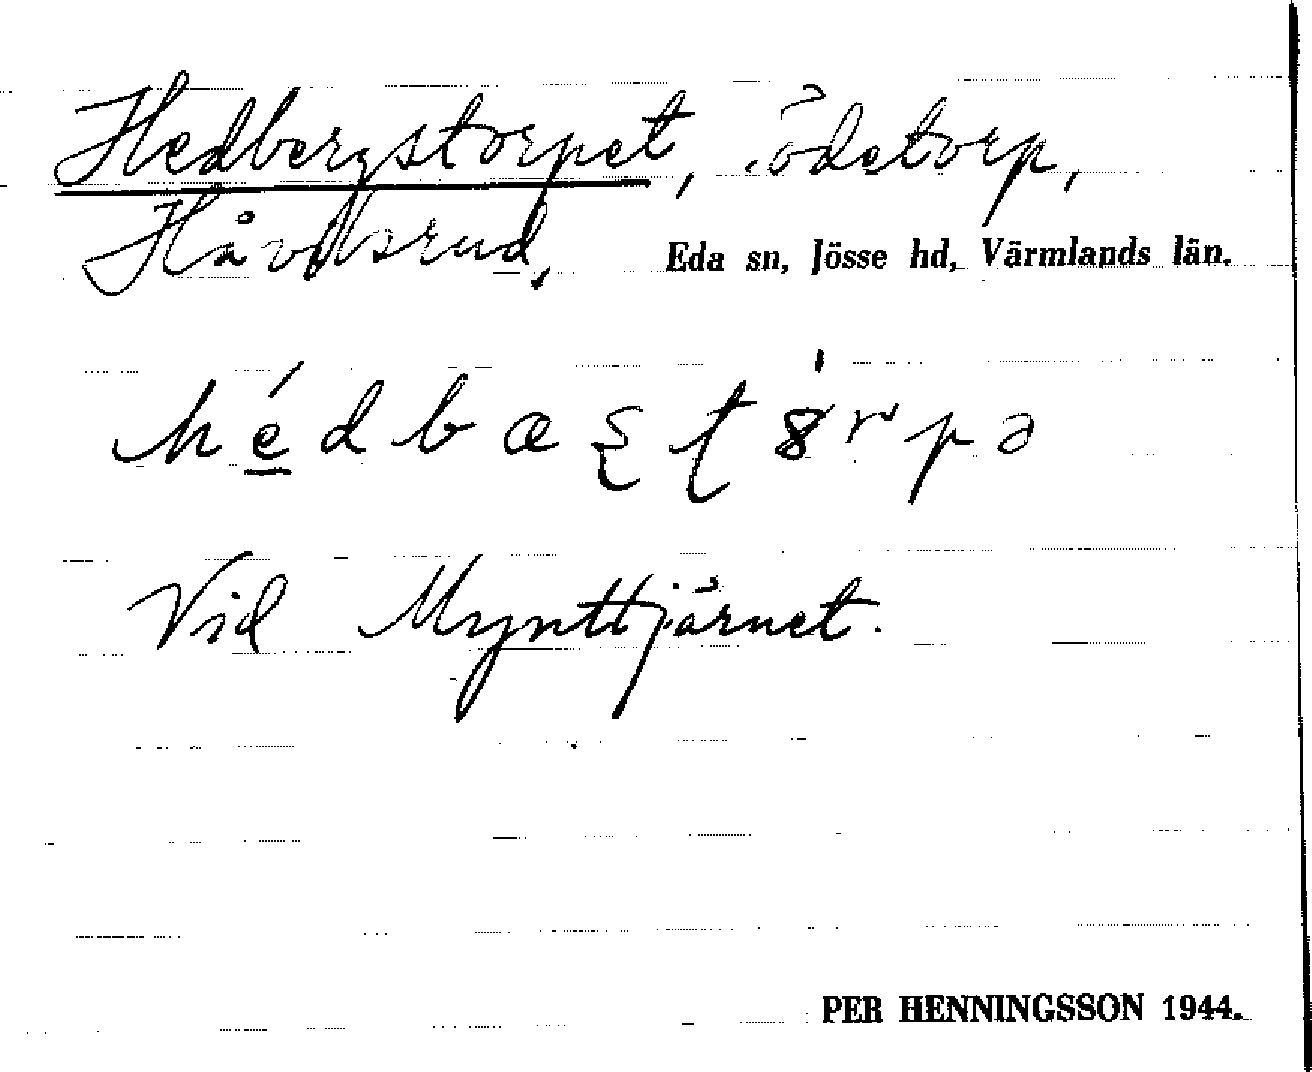 Hedbergstorpet, ödetorp,
Håvilsrud, Eda sn, Jösse hd, Värmlands län.
Vid Mynttjärnet.
PER HENNINGSSON 1944.